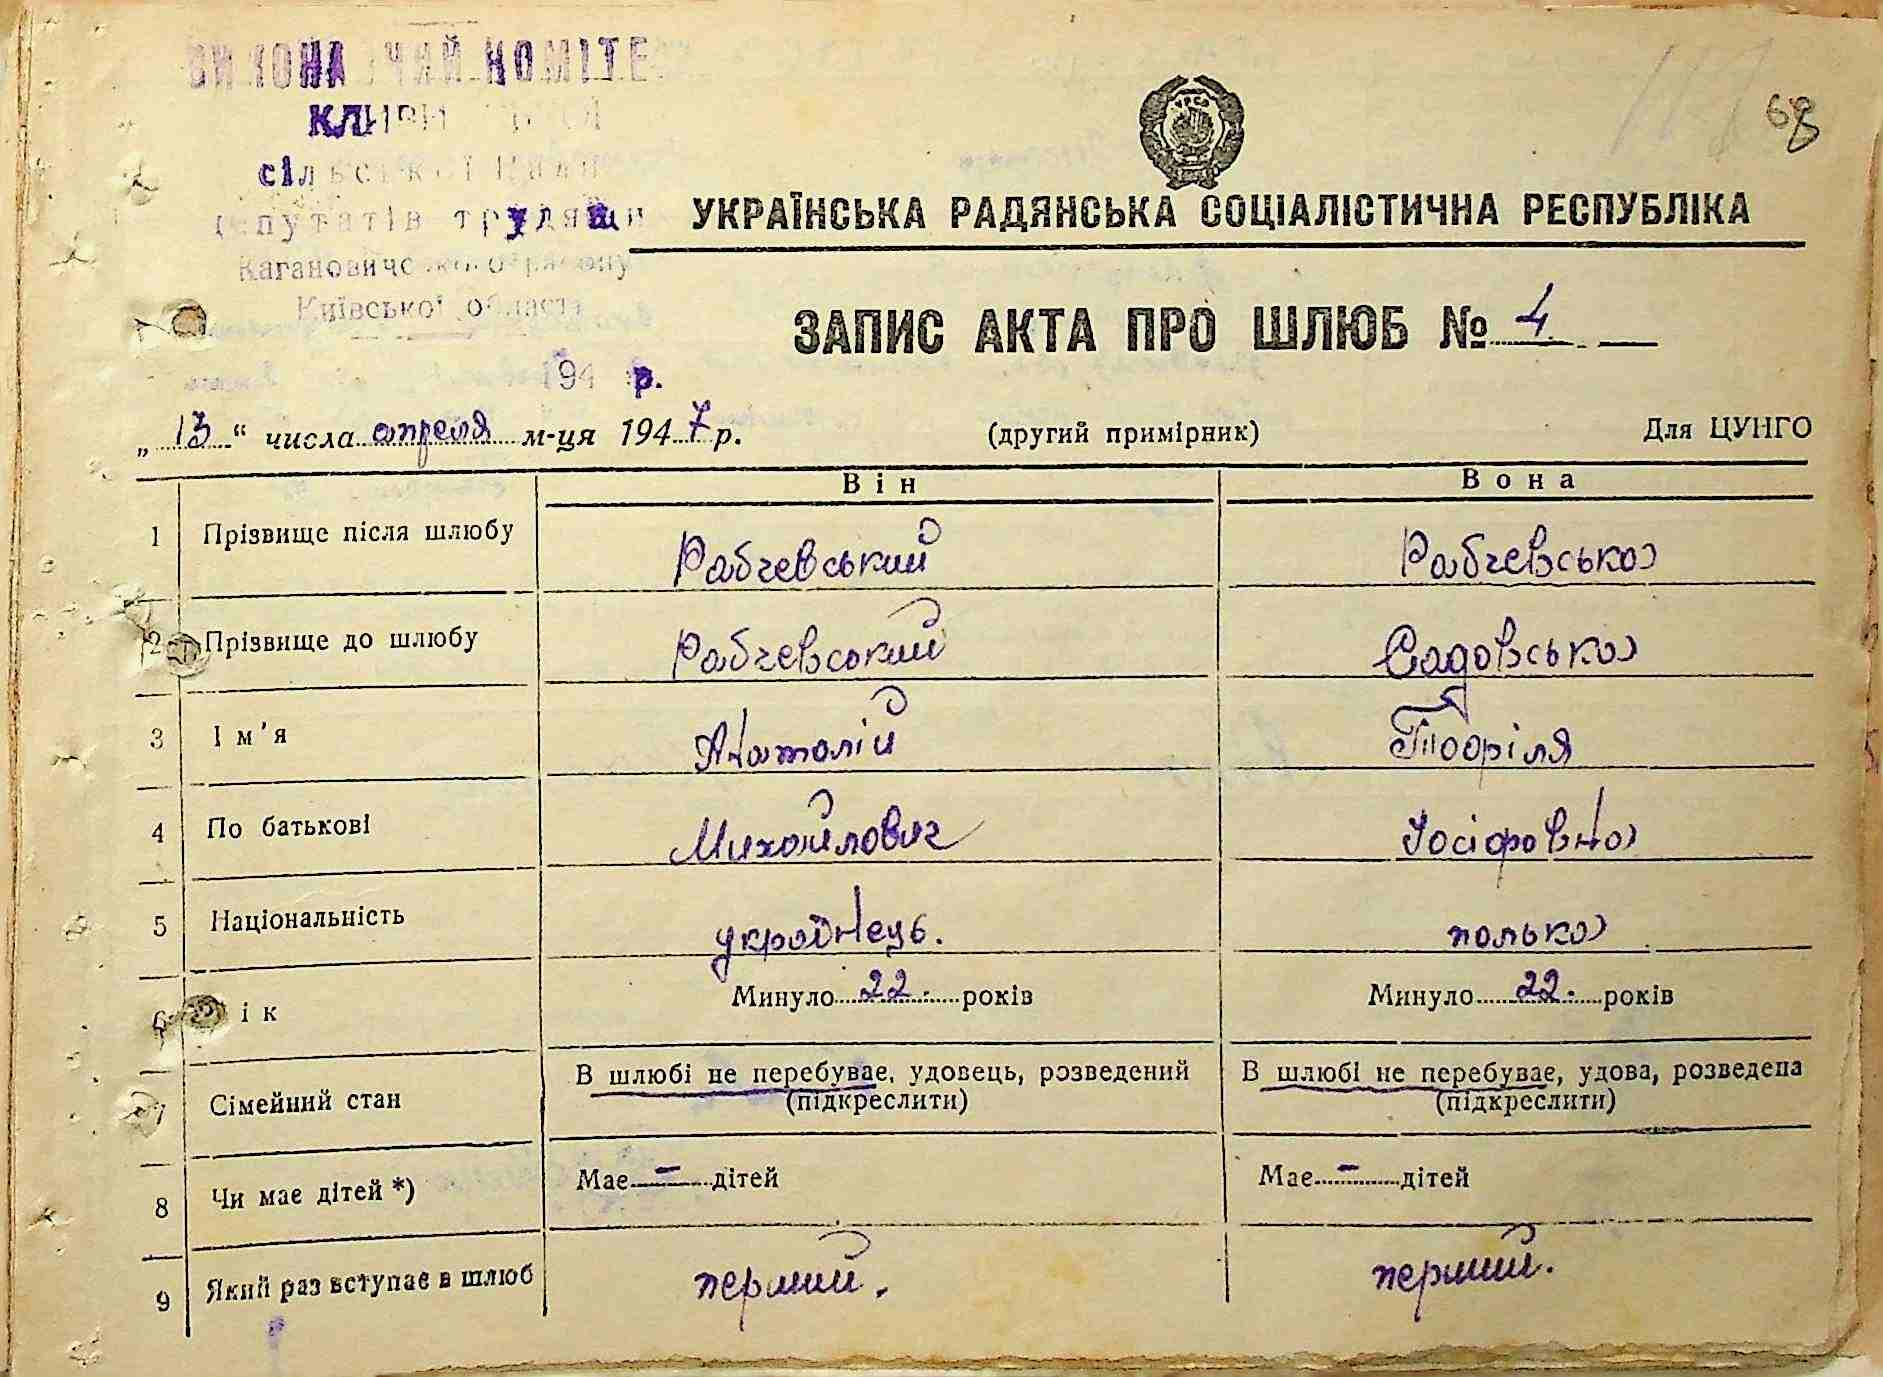 КЛИВИ
сільської ради
депутатів трудящи
Кагановичського району
Київської області
194 р.
68
УРСР
УКРАЇНСЬКА РАДЯНСЬКА СОЦІАЛІСТИЧНА РЕСПУБЛІКА
ЗАПИС АКТА ПРО ШЛЮБ № 4.
„13“ числа апреля м-ця 1947 р. (другий примірник) Для ЦУНГО
Він Вона
1 Прізвище після шлюбу Рабчевський Рабчевська
2 Прізвище до шлюбу Рабчевський Садовська
3 Ім'я Анатолій
4 По батькові Михайлович Йосіфовна
5 Національність українець. полька
6 ік Минуло 22. років Минуло 22. років
7 Сімейний стан В шлюбі не перебуває, удовець, розведений (підкреслити) В шлюбі не перебуває, удова, розведена (підкреслити)
8 Чи має дітей *) Має - дітей Має - дітей
9 Який раз вступає в шлюб перший. перший.